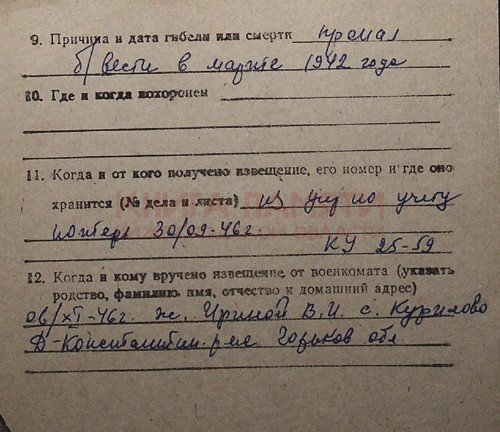 9. Причина и дата гибели или смерти пропал
б/вести в марте 1942 года
10. Где и когда похоронен
11. Когда и от кого получено извещение, его номер и где оно
хранится (№ дела и листа) из Упр по учету
потерь 30/09-46г.
КУ 25-59
12. Когда и кому вручено извещение от военкомата (указать
родство, фамилию имя, отчество и домашний адрес)
06/XI-46г. ж. Ириной В.И. с. Курилово
Д-Константин. р-не Горьков обл